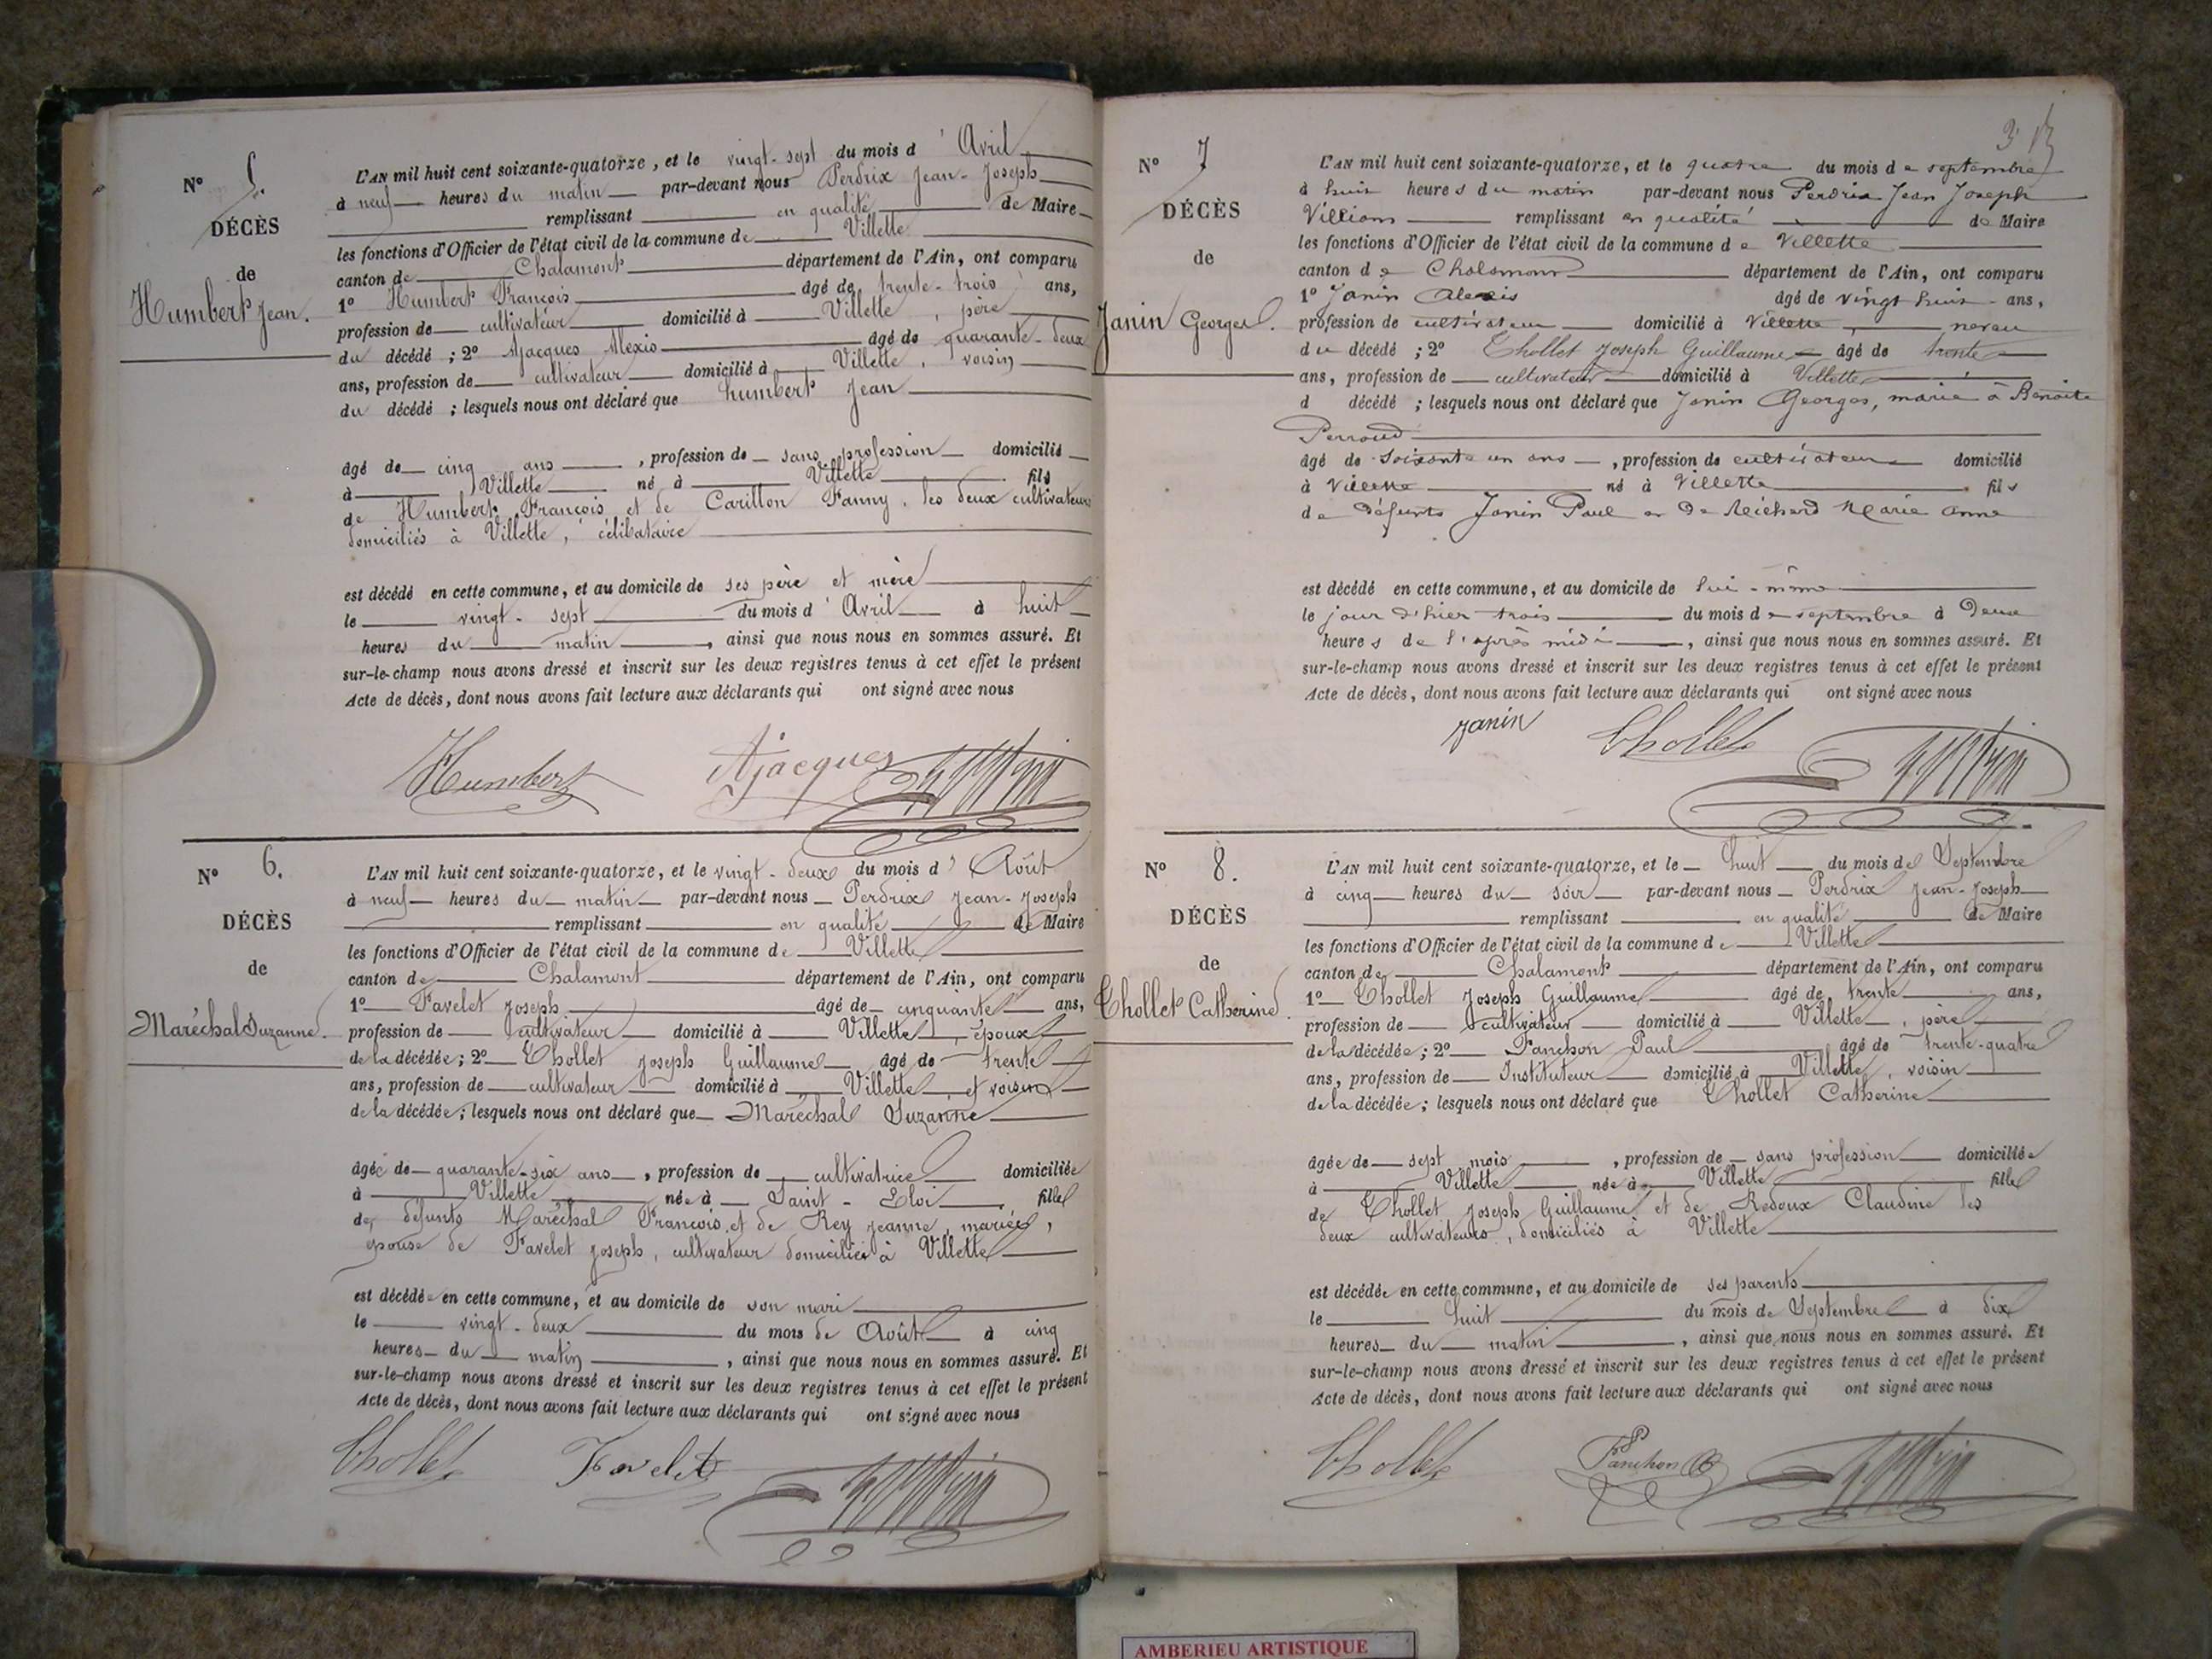 N° 5.
DÉCÈS
de
Humbert Jean.
L'AN mil huit cent soixante-quatorze, et le vingt-sept du mois d'Avril
à neuf heures du matin par-devant nous Perdrix Jean-Joseph
remplissant en qualité de Maire
les fonctions d'Officier de l'état civil de la commune de Villette
canton de Chalamont département de l'Ain, ont comparu
1° Humbert François âgé de trente-trois ans,
profession de cultivateur domicilié à Villette, père
du décédé ; 2° Ajacques Alexis âgé de quarante-deux
ans, profession de cultivateur domicilié à Villette, voisin
du décédé ; lesquels nous ont déclaré que humbert Jean
âgé de cinq ans, profession de sans profession domicilié
à Villette né à Villette fils
de Humbert François et de Carillon Fanny, les deux cultivateurs
domiciliés à Villette, célibataire
est décédé en cette commune, et au domicile de ses père et mère
le vingt-sept du mois d'Avril à huit
heures du matin, ainsi que nous nous en sommes assuré. Et
sur-le-champ nous avons dressé et inscrit sur les deux registres tenus à cet effet le présent
Acte de décès, dont nous avons fait lecture aux déclarants qui ont signé avec nous
Humbert Ajacques
N° 6.
DÉCÈS
de
Maréchal Suzanne.
L'AN mil huit cent soixante-quatorze, et le vingt-deux du mois d'Août
à neuf heures du matin par-devant nous Perdrix Jean-Joseph
remplissant en qualité de Maire
les fonctions d'Officier de l'état civil de la commune de Villette
canton de Chalamont département de l'Ain, ont comparu
1° Favelet Joseph âgé de cinquante ans,
profession de cultivateur domicilié à Villette, époux
de la décédée ; 2° Chollet Joseph Guillaume âgé de trente
ans, profession de cultivateur domicilié à Villette et voisin
de la décédée ; lesquels nous ont déclaré que Maréchal Suzanne
âgée de quarante-six ans, profession de cultivatrice domiciliée
à Villette née à Saint-Eloi, fille
des défunts Maréchal François et de Rey Jeanne, mariée,
épouse de Favelet Joseph, cultivateur domicilié à Villette
est décédée en cette commune, et au domicile de son mari
le vingt-deux du mois de Août à cinq
heures du matin, ainsi que nous nous en sommes assuré. Et
sur-le-champ nous avons dressé et inscrit sur les deux registres tenus à cet effet le présent
Acte de décès, dont nous avons fait lecture aux déclarants qui ont signé avec nous
Chollet Favelet
N° 7
DÉCÈS
de
Janin Georges.
L'AN mil huit cent soixante-quatorze, et le quatre du mois de septembre
à huit heures du matin par-devant nous Perdrix Jean Joseph
remplissant en qualité de Maire
les fonctions d'Officier de l'état civil de la commune de Villette
canton de Chalamont département de l'Ain, ont comparu
1° Janin Alexis âgé de vingt huit ans,
profession de cultivateur domicilié à Villette, neveu
du décédé ; 2° Chollet Joseph Guillaume âgé de trente
ans, profession de cultivateur domicilié à Villette
d décédé ; lesquels nous ont déclaré que Janin Georges, marié à Benoîte
Perroud
âgé de soixante un ans, profession de cultivateur domicilié
à Villette né à Villette fils
de défunts Janin Paul et de Michard Marie Anne
est décédé en cette commune, et au domicile de lui-même
le jour d'hier trois du mois de septembre à Deux
heures de l'après midi, ainsi que nous nous en sommes assuré. Et
sur-le-champ nous avons dressé et inscrit sur les deux registres tenus à cet effet le présent
Acte de décès, dont nous avons fait lecture aux déclarants qui ont signé avec nous
Janin Chollet
N° 8.
DÉCÈS
de
Chollet Catherine.
L'AN mil huit cent soixante-quatorze, et le huit du mois de Septembre
à cinq heures du soir par-devant nous Perdrix Jean-Joseph
remplissant en qualité de Maire
les fonctions d'Officier de l'état civil de la commune de Villette
canton de Chalamont département de l'Ain, ont comparu
1° Chollet Joseph Guillaume âgé de trente ans,
profession de cultivateur domicilié à Villette, père
de la décédée ; 2° Panchon Paul âgé de trente-quatre
ans, profession de Instituteur domicilié à Villette, voisin
de la décédée ; lesquels nous ont déclaré que Chollet Catherine
âgée de sept mois, profession de sans profession domiciliée
à Villette née à Villette fille
de Chollet Joseph Guillaume et de Redoux Claudine les
deux cultivateurs, domiciliés à Villette
est décédée en cette commune, et au domicile de ses parents
le huit du mois de Septembre à dix
heures du matin, ainsi que nous nous en sommes assuré. Et
sur-le-champ nous avons dressé et inscrit sur les deux registres tenus à cet effet le présent
Acte de décès, dont nous avons fait lecture aux déclarants qui ont signé avec nous
Chollet Panchon
AMBERIEU ARTISTIQUE